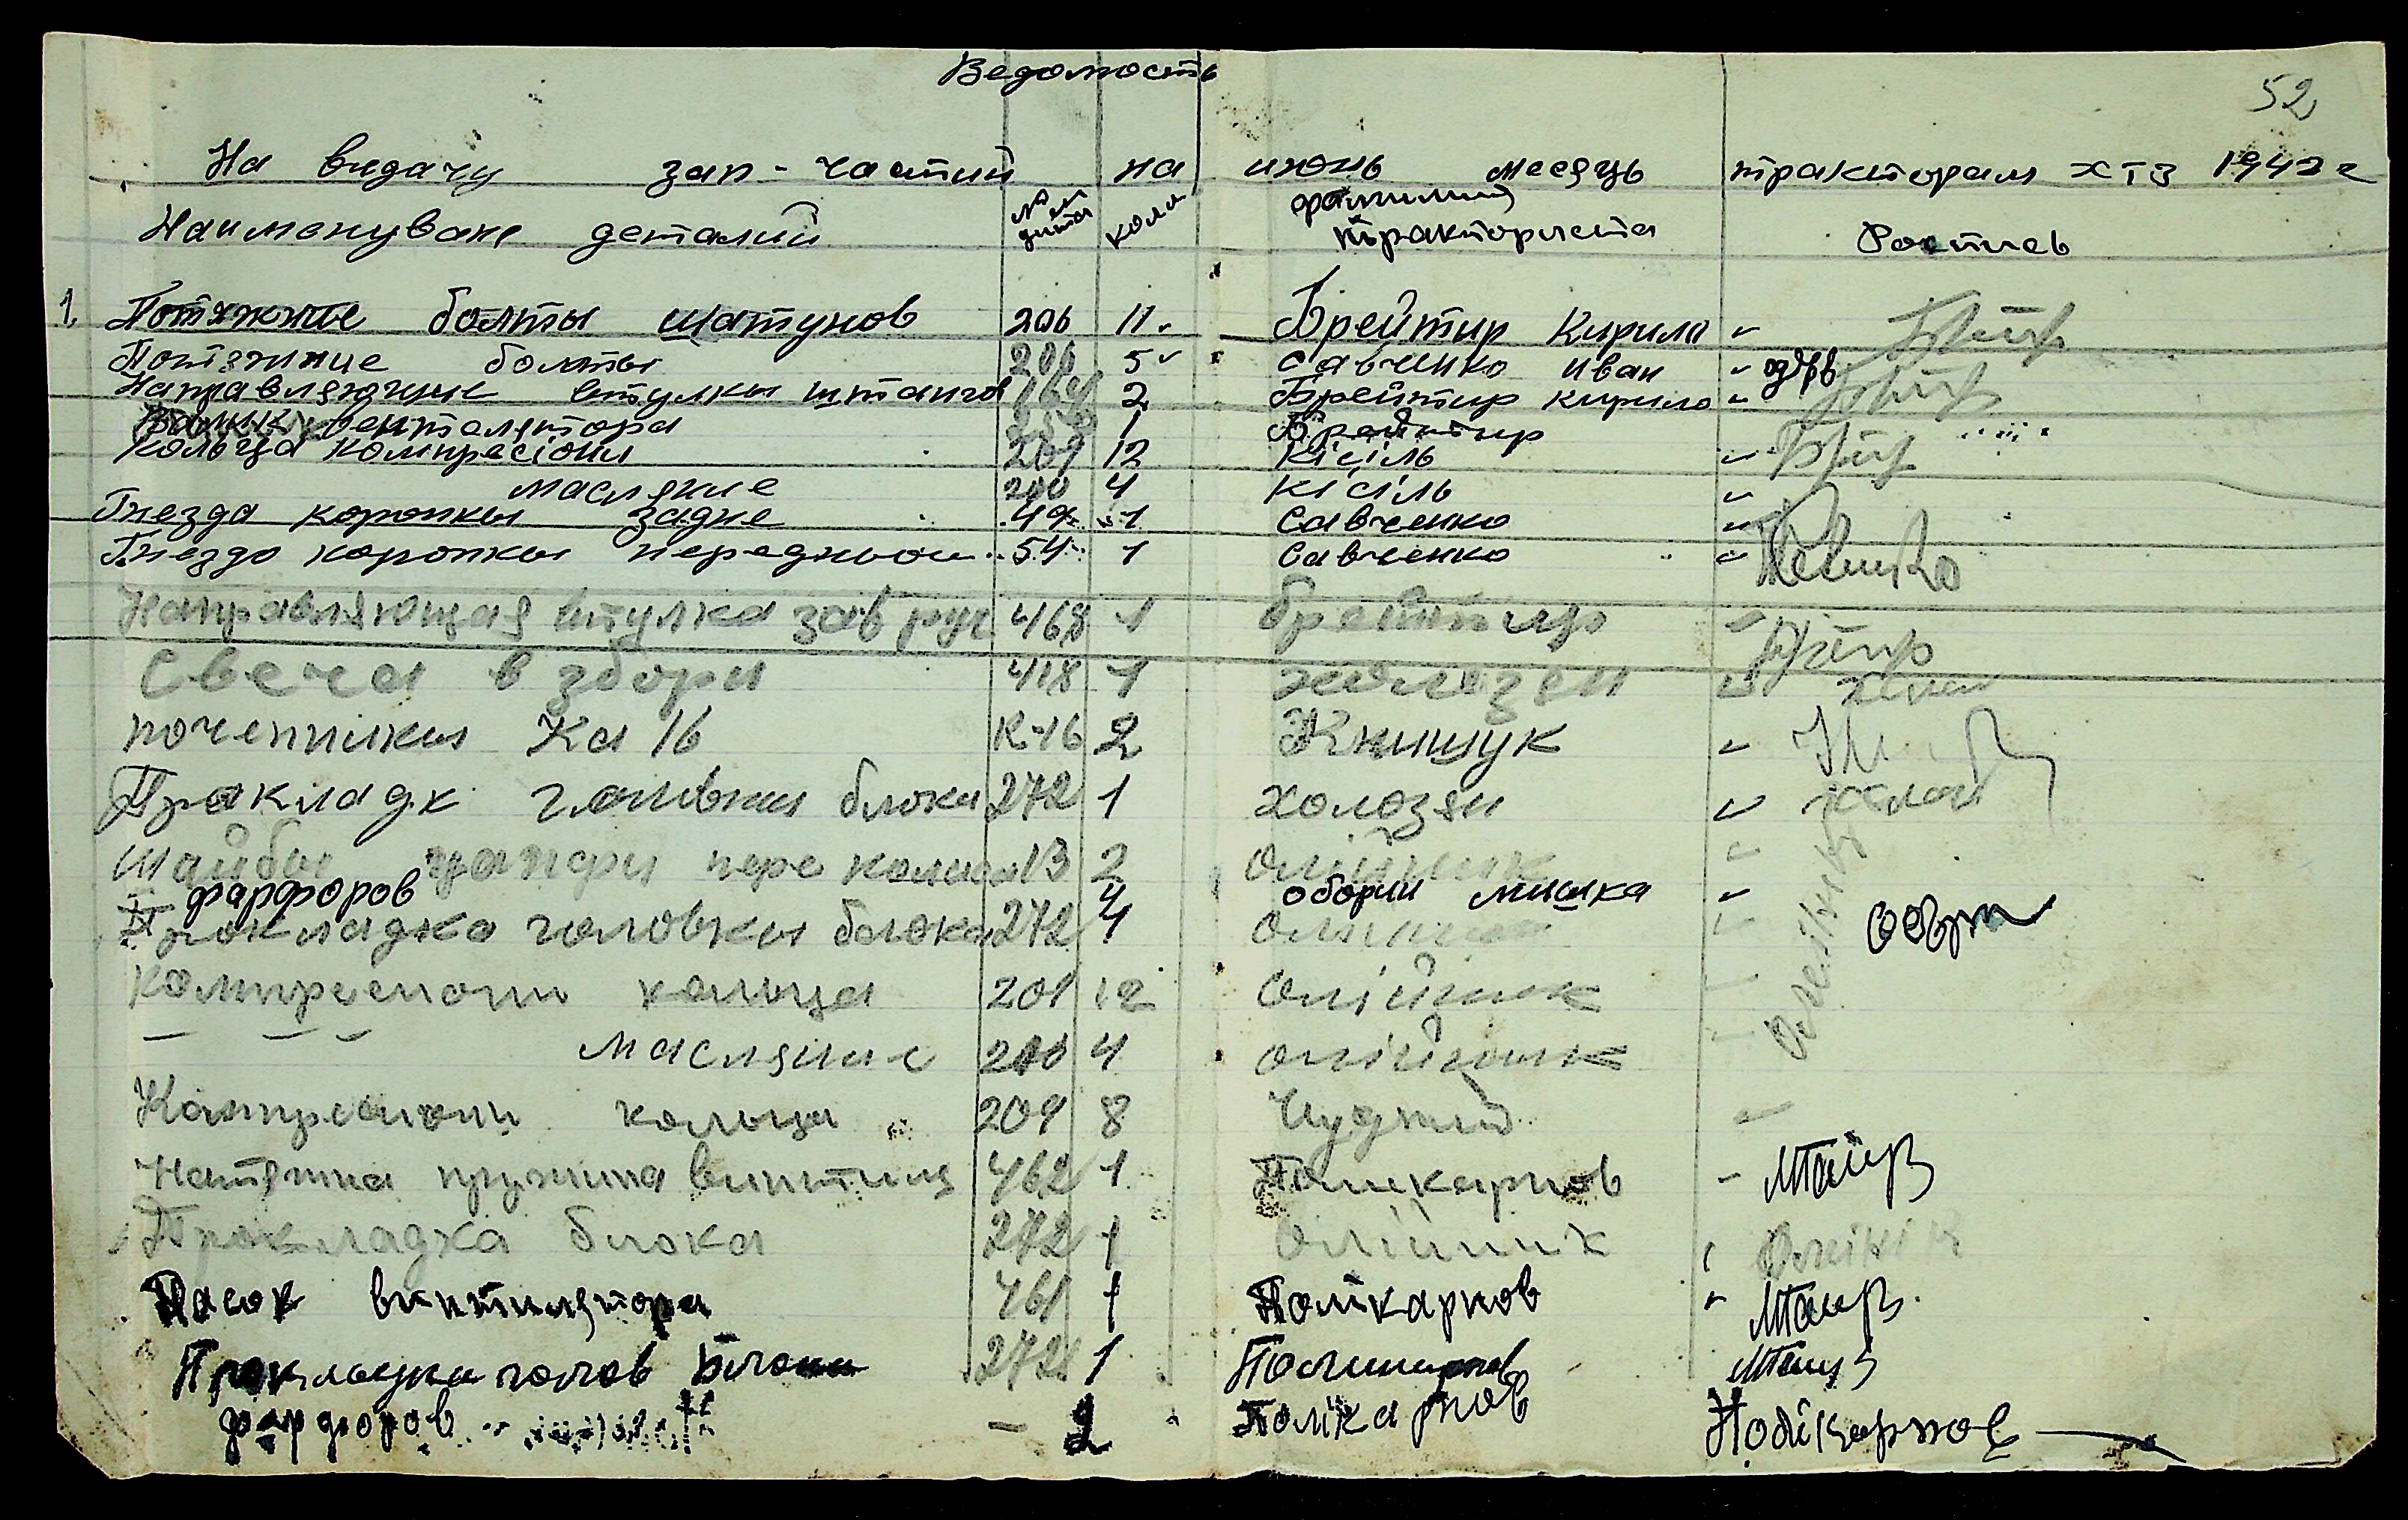 Ведомость
52
На видачу зап-частий на июнь месяць тракторам ХТЗ 1942 г
Наименуване деталий № дета коли фамилий тракториста Роспись
1. Потяжние болты шатунов 206 11 Брейтир Кирило
Потяжние болты 206 5 Савченко Иван
Направляющие втулки штангов 164 2 Брейтир Кирило
Валик вентелятора 1 Брейтир
Кольца компресіони 209 12 Кісіль
масляние 210 4 Кісіль
Гнезда коропки задне 49 1 Савченко
Гнездо коропки передньои 54 1 Савченко
Направляющая втулка зав руч 468 1 Брейтир
Свеча в збори 418 1 холозян
почепники Ка 16 К-16 2 Книшук
Прокладк головки блока 272 1 холозян
Шайбы цапфи пере колиса 13 2 Олійник
фарфоров 4 оборин мишка
Прокладка головки блока 272 1 Олійник
Компресиони кольца 201 12 Олійник
— — — масляние 210 4 Олійник
Компресиони кольца 209 8 Чудний
Натяжна пружина винтиля 462 1 Поликарпов
Прокладка блока 272 1 Олійник Олійнік
Пасок винтилятора 461 1 Полікарпов
Прокладка голов Блока 272 1 Поликарпов
фарфоров — 2 Полікарпов Полікарпов